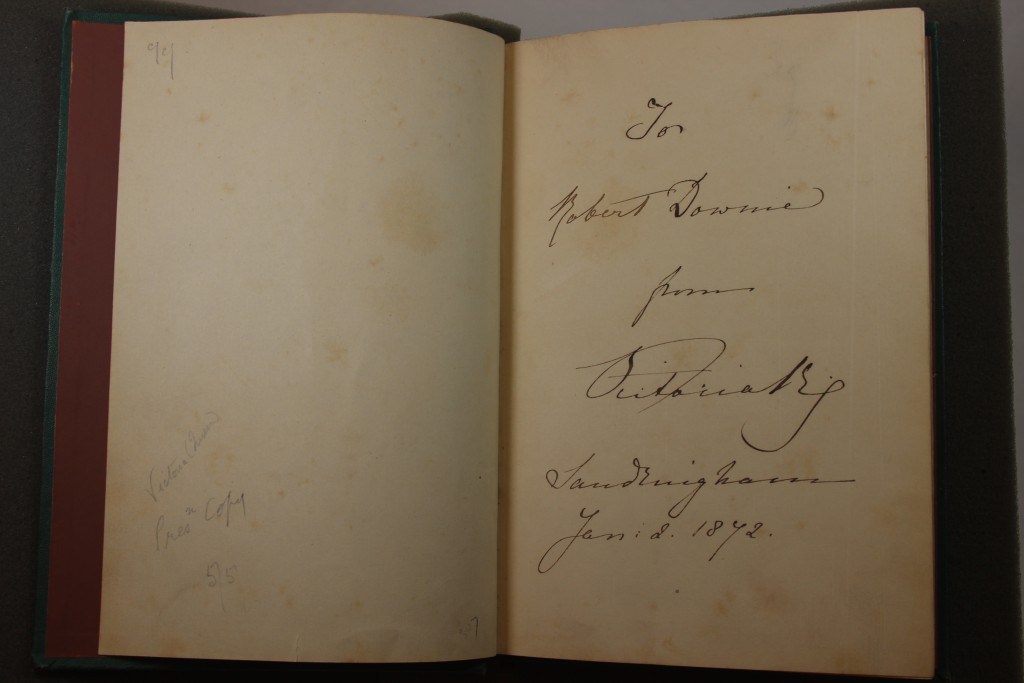 Presⁿ Copy
5/5
To
Robert Downie
from
Victoria R
Sandringham
Jan: 2. 1872.